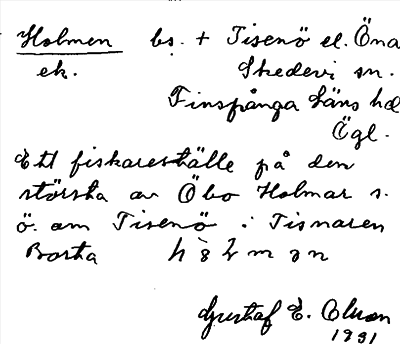 Holmen bs. + Tisenö el. Öna
ek. Skedevi sn.
Finspånga läns hd
Ögl.
Ett fiskareställe på den
största av Öbo Holmar s.
ö. om Tisenö i Tisnaren
Borta
Gustaf E. Olson
1931